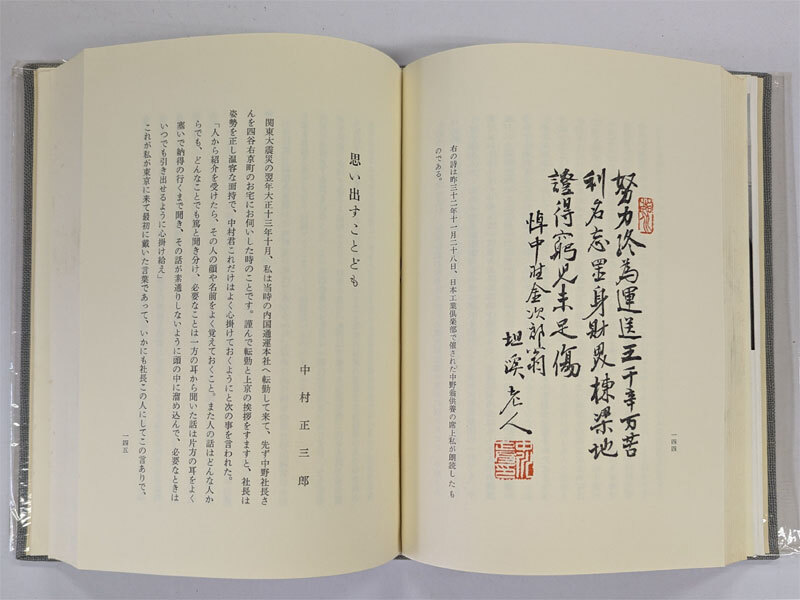 努力终為運送王千辛万苦
利名忘罢身財異棟梁地
證得窮児未足傷
悼中野金次郎翁
坦溪老人
右の詩は昨三十二年十一月二十八日、日本工業倶楽部で催された中野翁供養の席上私が朗読したも
のである。
一四四
思い出すことども
中村正三郎
関東大震災の翌年大正十三年十月、私は当時の内国通運本社へ転勤して来て、先ず中野社長さ
んを四谷右京町のお宅にお伺いした時のことです。謹んで転勤と上京の挨拶をすますと、社長は
姿勢を正し温容な面持で、中村君これだけはよく心掛けておくようにと次の事を言われた。
「人から紹介を受けたら、その人の顔や名前をよく覚えておくこと。また人の話はどんな人か
らでも、どんなことでも篤と聞き分け、必要なことは一方の耳から聞いた話は片方の耳をよく
塞いで納得の行くまで聞き、その話が素通りしないように頭の中に溜め込んで、必要なときは
いつでも引き出せるように心掛け給え」
これが私が東京に出て来て最初に戴いた言葉であって、いかにも社長この人にしてこの言ありで、
一四五